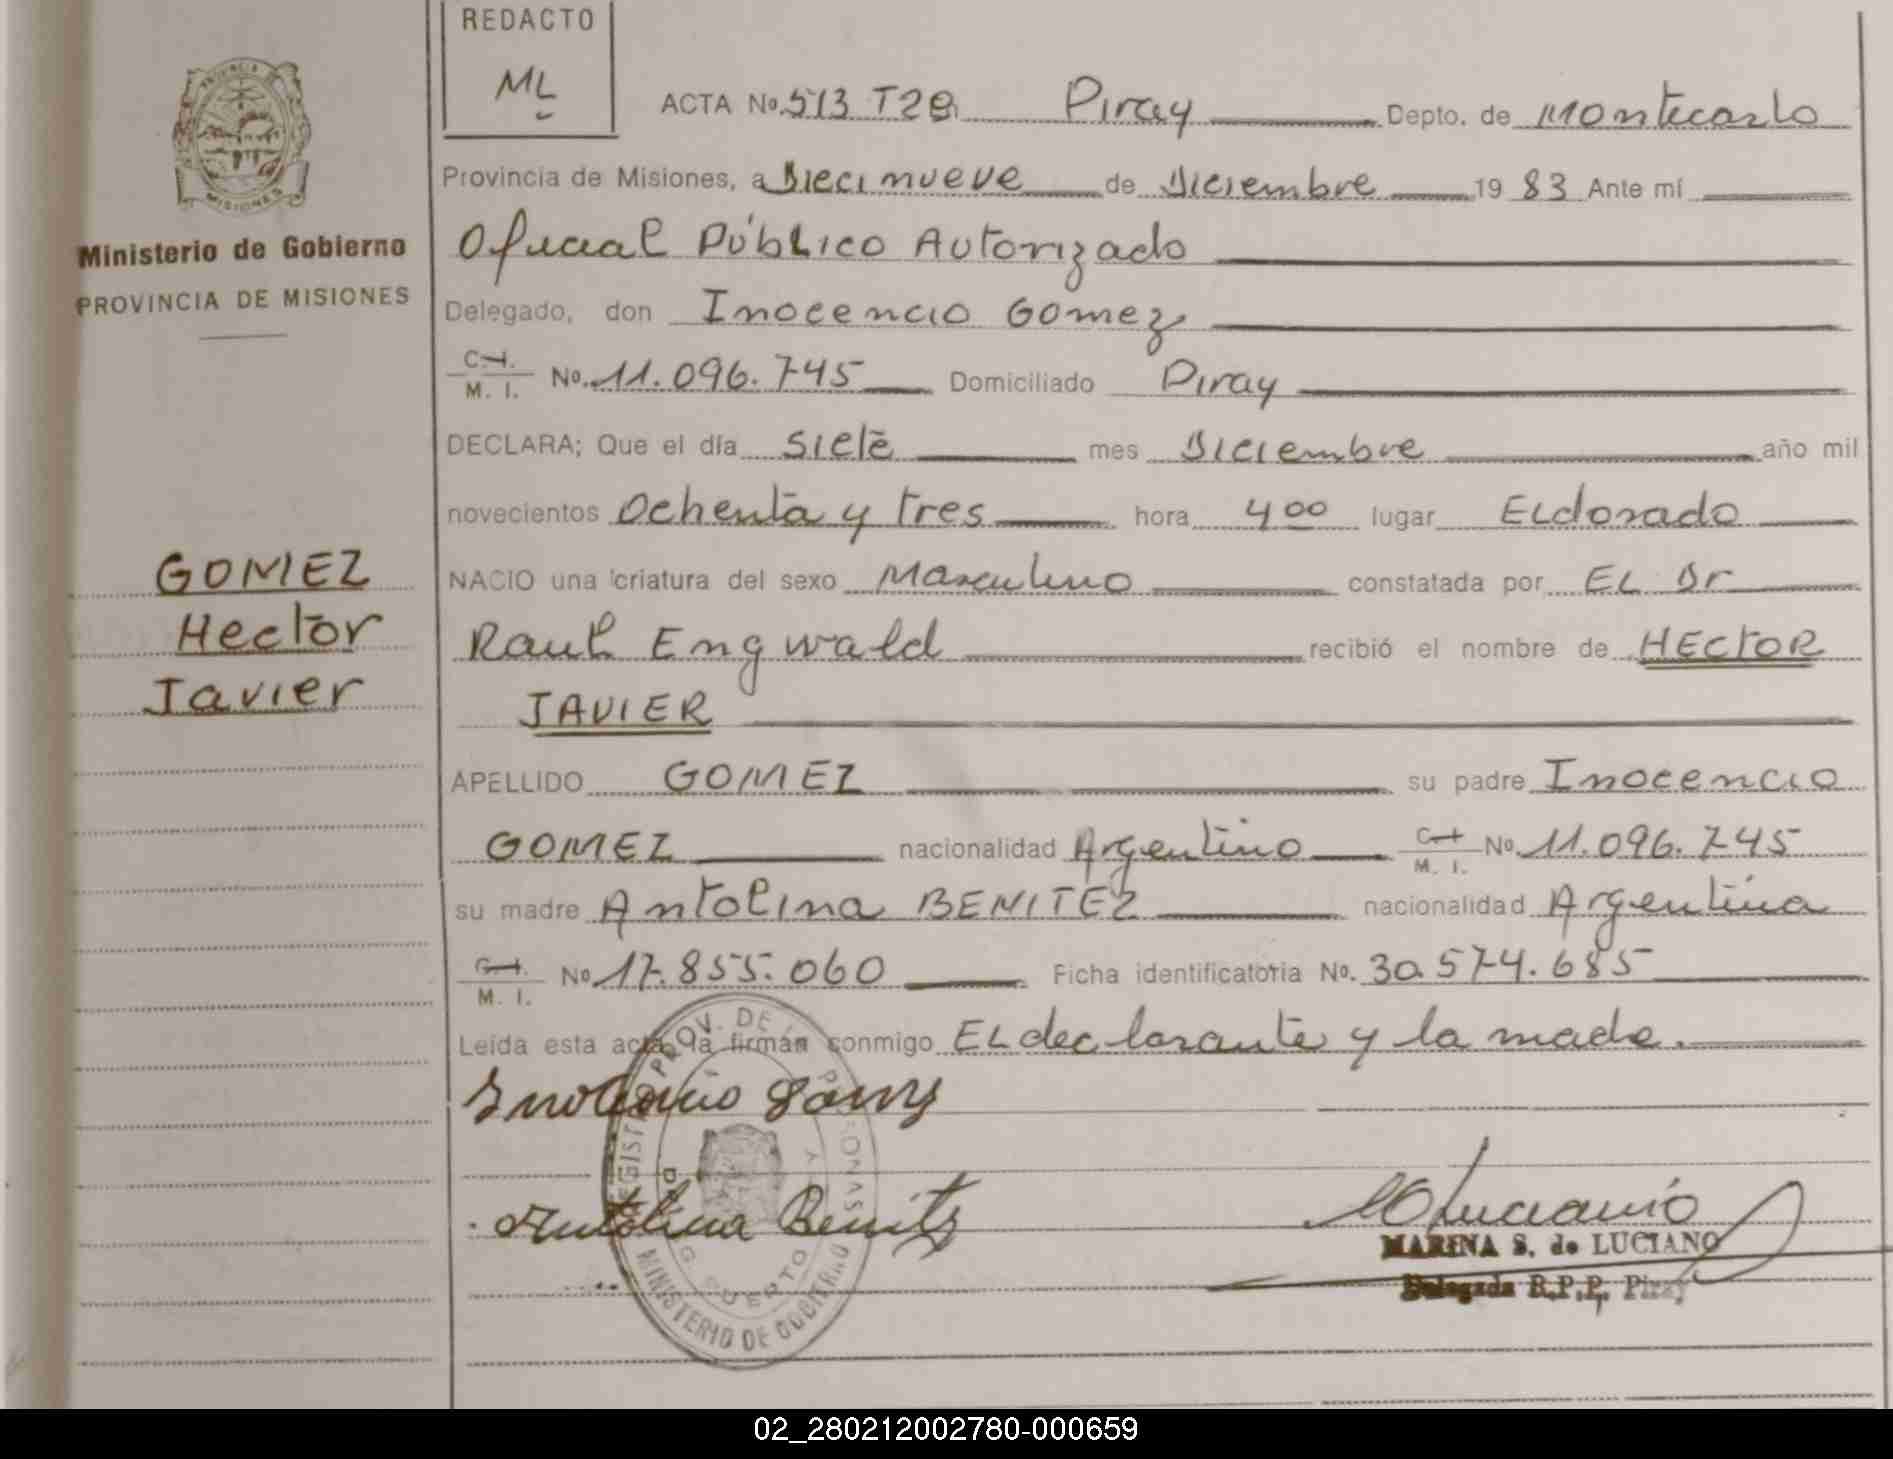 REDACTO
ML
PROVINCIA DE
MISIONES
Ministerio de Gobierno
PROVINCIA DE MISIONES
GOMEZ
Hector
Javier
ACTA Nº 513 T2º Piray Depto. de Montecarlo
Provincia de Misiones, a Diecinueve de Diciembre 19 83 Ante mí
Oficial Público Autorizado
Delegado, don Inocencio Gomez
C.I. M. I. Nº 11.096.745 Domiciliado Piray
DECLARA; Que el día Siete mes Diciembre año mil
novecientos Ochenta y tres hora 4 00 lugar ELdorado
NACIO una criatura del sexo Masculino constatada por EL Dr
Raul Engwald recibió el nombre de HECTOR
JAVIER
APELLIDO GOMEZ su padre Inocencio
GOMEZ nacionalidad Argentino C.I. M. I. Nº 11.096.745
su madre Antolina BENITEZ nacionalidad Argentina
C.I. M. I. Nº 17.855.060 Ficha identificatoria Nº. 30.574.685
Leída esta acta, la firman conmigo EL declarante y la made.
Inocencio Gomez
Antolina Benitz
MINISTERIO DE GOBIERNO
MARINA S. de LUCIANO
Delegada R.P.P. Piray
02_280212002780-000659